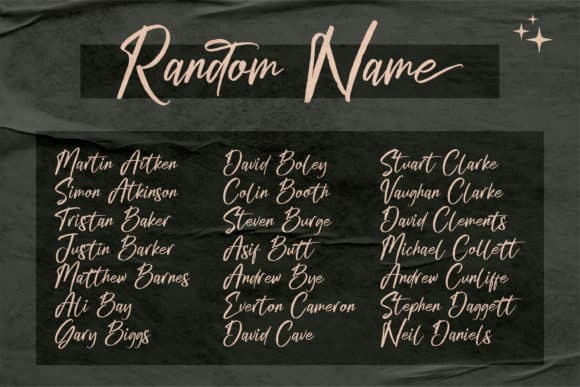 Random Name
Martin Aitken
Simon Atkinson
Tristan Baker
Justin Barker
Matthew Barnes
Ali Bay
Gary Biggs
David Boley
Colin Booth
Steven Burge
Asif Butt
Andrew Bye
Everton Cameron
David Cave
Stuart Clarke
Vaughan Clarke
David Clements
Michael Collett
Andrew Cunliffe
Stephen Daggett
Neil Daniels